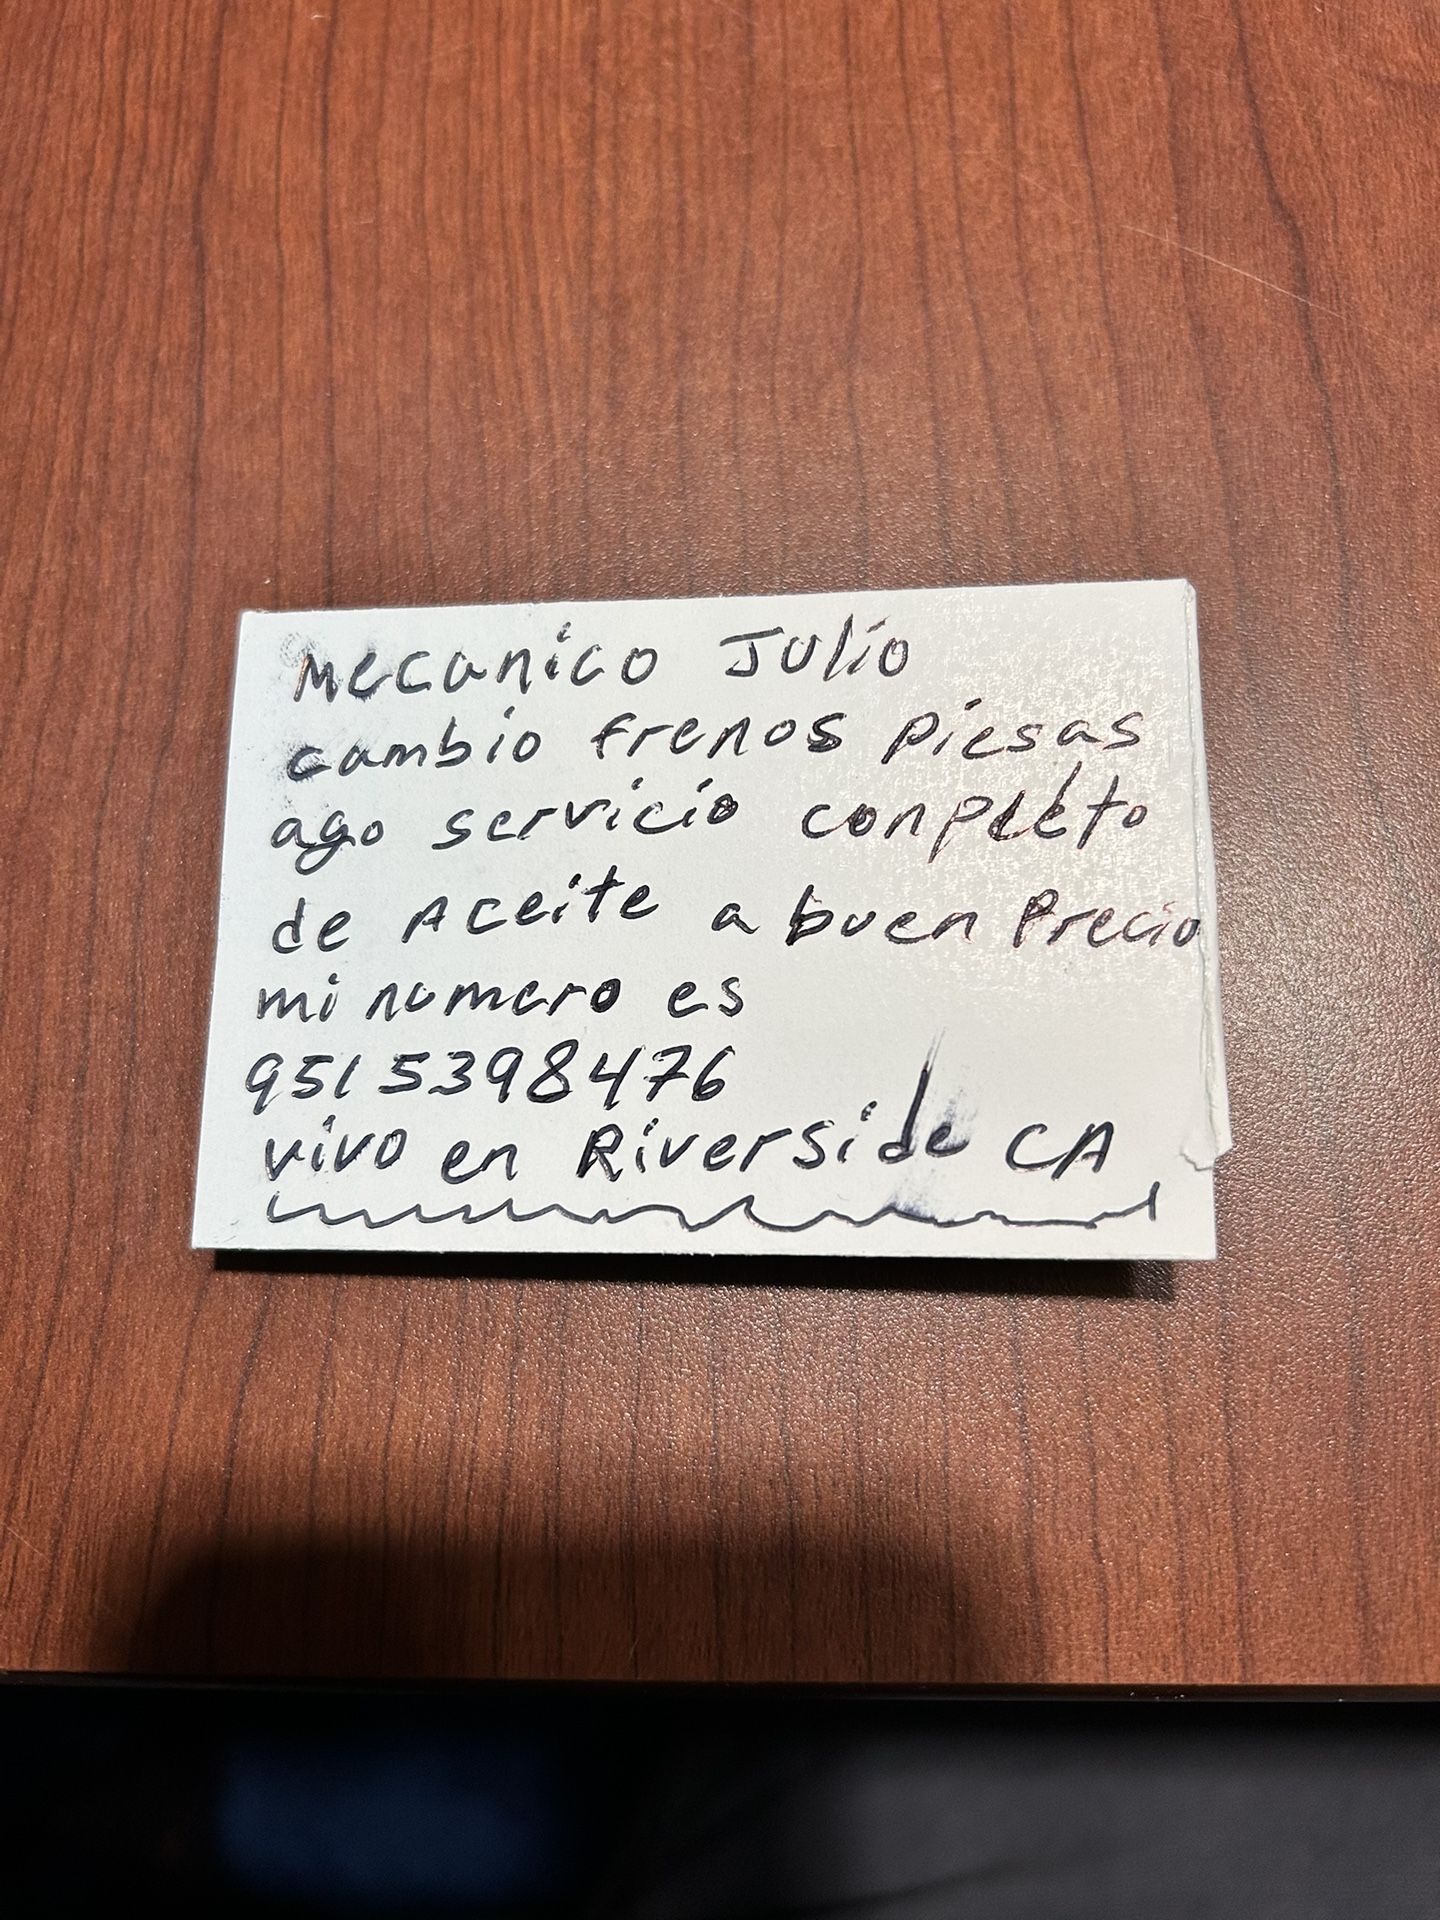 Mecanico Julio
cambio frenos piesas
ago servicio conpleto
de Aceite a buen Precio
mi numero es
951 5398476
vivo en Riverside CA